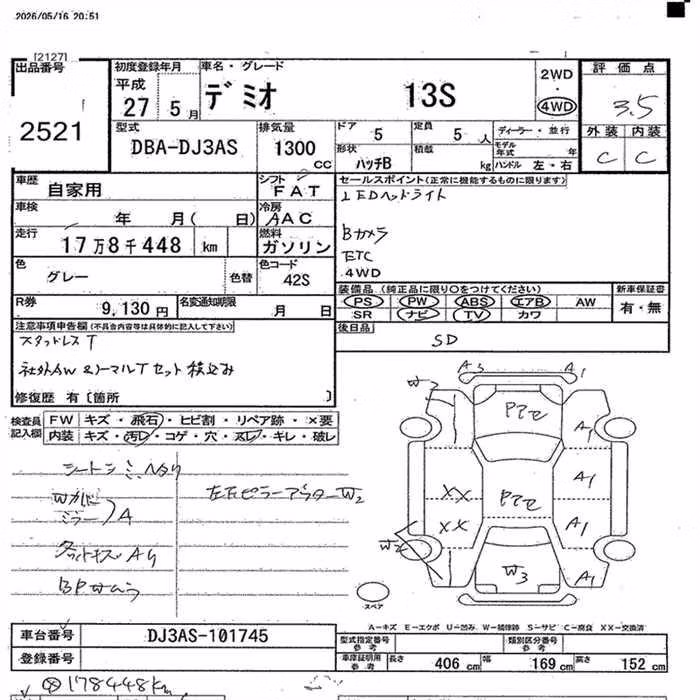 2026/05/16 20:51
[2127]
出品番号
2521
初度登録年月
平成
27 5 月
車名・グレード
デミオ 13S
2WD
・
4WD
評価点
3.5
外装 内装
C C
型式
DBA-DJ3AS
排気量
1300 cc
ドア 5
定員 5 人
ディーラー・並行
形状 ハッチB
積載 kg
モデル年式 年
ハンドル 左・右
車歴 自家用
シフト FAT
セールスポイント(正常に機能するものに限ります)
LEDヘッドライト
Bカメラ
ETC
4WD
車検 年 月( 日)
冷房 AAC
走行 17万8千448 km
燃料 ガソリン
色 グレー
色替
色コード 42S
装備品 (純正品に限り○をつけてください)
新車保証書
PS PW ABS エアB AW
有・無
SR ナビ TV カワ
R券 9,130円
名変通知期限 月 日
後日品
SD
注意事項申告欄(不具合内容等は具体的に記入して下さい)
スタッドレスT
社外AW &ノーマルTセット積込み
修復歴 有〔箇所 〕
検査員記入欄
FW キズ・飛石・ヒビ割・リペア跡・×要
内装 キズ・汚レ・コゲ・穴・スレ・キレ・破レ
A3 A1
W2
Pママ
A1
A1
XX
Pママ
XX
A1
W2
W3
A1
スペア
ミラー
A
左右ピラーアウターW2
A-キズ E-エクボ U-凹み W-補修跡 S-サビ C-腐食 XX-交換済
車台番号 DJ3AS-101745
登録番号
型式指定番号 参考
類別区分番号 参考
車庫証明用 参考
長さ 406 cm 幅 169 cm 高さ 152 cm
178448km